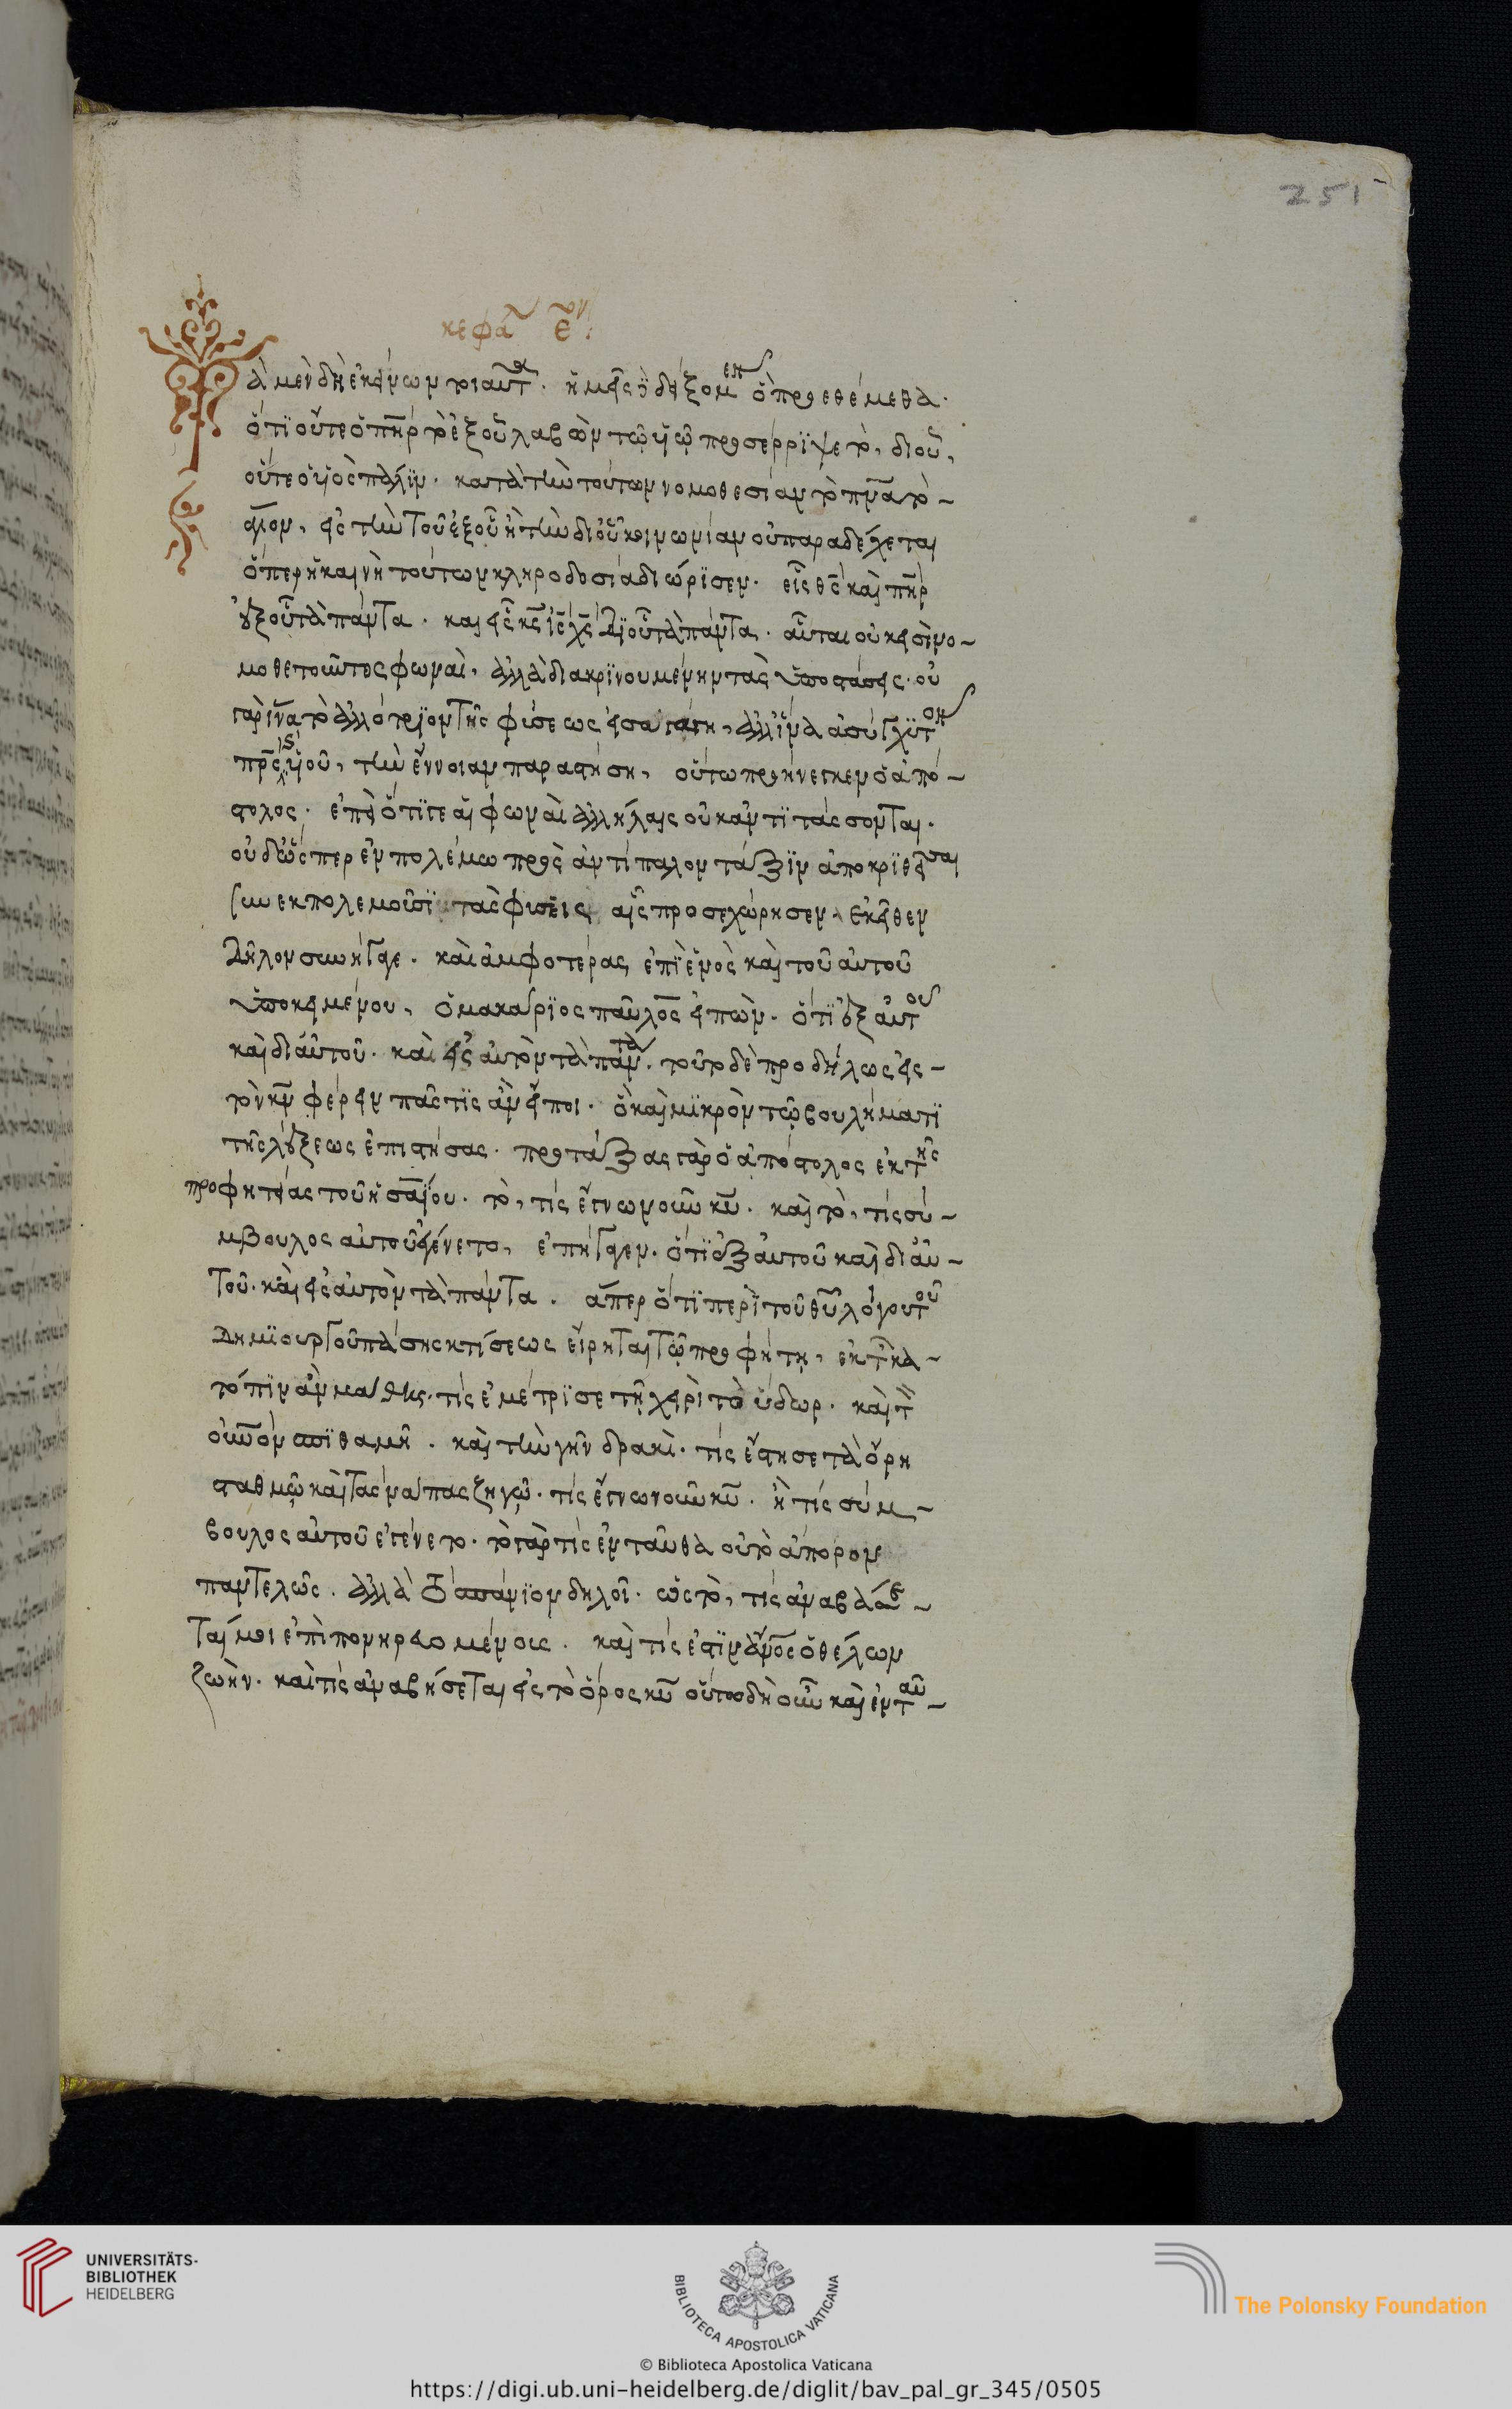 251
κεφά ε̄ον:
Τὰ μὲν δὴ ἐκείνων τοιαῦτα. ἡμεῖς δείξομεν ὃ προεθέμεθα.
ὅτι οὔτε ὁ πη̄ρ τὸ ἐξ οὗ λαβὼν τῷ υἱῷ προσερρίψε τὸ, δι οὗ,
οὔτε ὁ υἱὸς πάλιν. κατὰ τὴν τούτων νομοθεσίαν τὸ πν̄α τὸ
ἅγιον, εἰς τὴν τοῦ ἐξ οὗ ἢ τὴν δι οὗ κοινωνίαν οὐ παραδέχεται
ὅπερ ἡ καινὴ τούτων κληροδοσία διώρισεν. εἷς θς̄ καὶ πη̄ρ
ἐξ οὗ τὰ πάντα. καὶ εἷς κς̄ ις̄ χς̄ δι οὗ τὰ πάντα. αὗται οὐκ εἰσὶ νο-
μοθετοῦντος φωναὶ, ἀλλὰ διακρινουμένην τὰς ὑποστάσεις. οὐ
γὰρ ἵνα τὸ ἀλλότριον τῆς φύσεως εἰσαγάγη, ἀλλ ἵνα ἀσύγχυτον
πρς̄ ς υἱοῦ, τὴν ἔννοιαν παραστήση, οὕτω προήνεγκεν ὁ ἀπό-
στολος. ἐπεὶ ὅτι γε αἱ φωναὶ ἀλλήλαις οὐκ ἀντιτάσσονται.
οὐδ ὥσπερ ἐν πολέμω πρὸς ἀντίπαλον τάξιν ἀποκριθεῖσαι
συνεκπολεμοῦσι τὰς φύσεις αἷς προσεχώρησεν, ἐκεῖθεν
δῆλον συνήγαγε. καὶ ἀμφοτέρας ἐπὶ ἑνὸς καὶ τοῦ αὐτοῦ
ὑποκειμένου, ὁ μακάριος παῦλος εἰπὼν. ὅτι ἐξ αὐτοῦ
καὶ δι αὐτοῦ. καὶ εἰς αὐτὸν τὰ πάντα. τοῦτο δὲ προδήλως εἰς
τὸν κν̄ φέρειν πᾶς τίς ἂν εἴποι. ὁ καὶ μικρὸν τῷ βουλήματι
τῆς λέξεως ἐπιστήσας. προτάξας γὰρ ὁ ἀπόστολος ἐκ τῆς
προφητείας τοῦ ἡσαΐου. τὸ, τίς ἔγνω νοῦν κῡ. καὶ τὸ, τίς σύ-
μβουλος αὐτοῦ ἐγένετο, ἐπήγαγεν. ὅτι ἐξ αὐτοῦ καὶ δι αὐ-
τοῦ. καὶ εἰς αὐτὸν τὰ πάντα. ἅπερ ὅτι περὶ τοῦ θῡ λόγου τοῦ
δημιουργοῦ πάσης κτίσεως εἴρηται τῷ προφήτη, ἐκ τῶν κα-
τόπιν ἂν μάθοις. τίς ἐμέτρισε τῆ χειρὶ τὸ ὕδωρ. καὶ τὸν
οὐνὸν σπιθαμῆ. καὶ τὴν γῆν δρακὶ. τίς ἔστησε τὰ ὄρη
σταθμῷ καὶ τὰς νάπας ζηγῷ. τίς ἔγνω νοῦν κῡ. ἢ τίς σύμ-
βουλος αὐτοῦ ἐγένετο. τὸ γὰρ τίς ἐνταῦθα οὐ τὸ ἄπορον
παντελῶς. ἀλλὰ τὸ σπάνιον δηλοῖ. ὡς τὸ, τίς ἀναστήσε-
ταί μοι ἐπὶ πονηρευομένοις. καὶ τίς ἐστιν ἄνο̄ς ὁ θέλων
ζωὴν. καὶ τίς ἀναβήσεται εἰς τὸ ὄρος κῡ οὕτω δὴ οὖν καὶ ἐνταῦ-
UNIVERSITÄTS-
BIBLIOTHEK
HEIDELBERG
BIBLIOTECA APOSTOLICA VATICANA
The Polonsky Foundation
© Biblioteca Apostolica Vaticana
https://digi.ub.uni-heidelberg.de/diglit/bav_pal_gr_345/0505